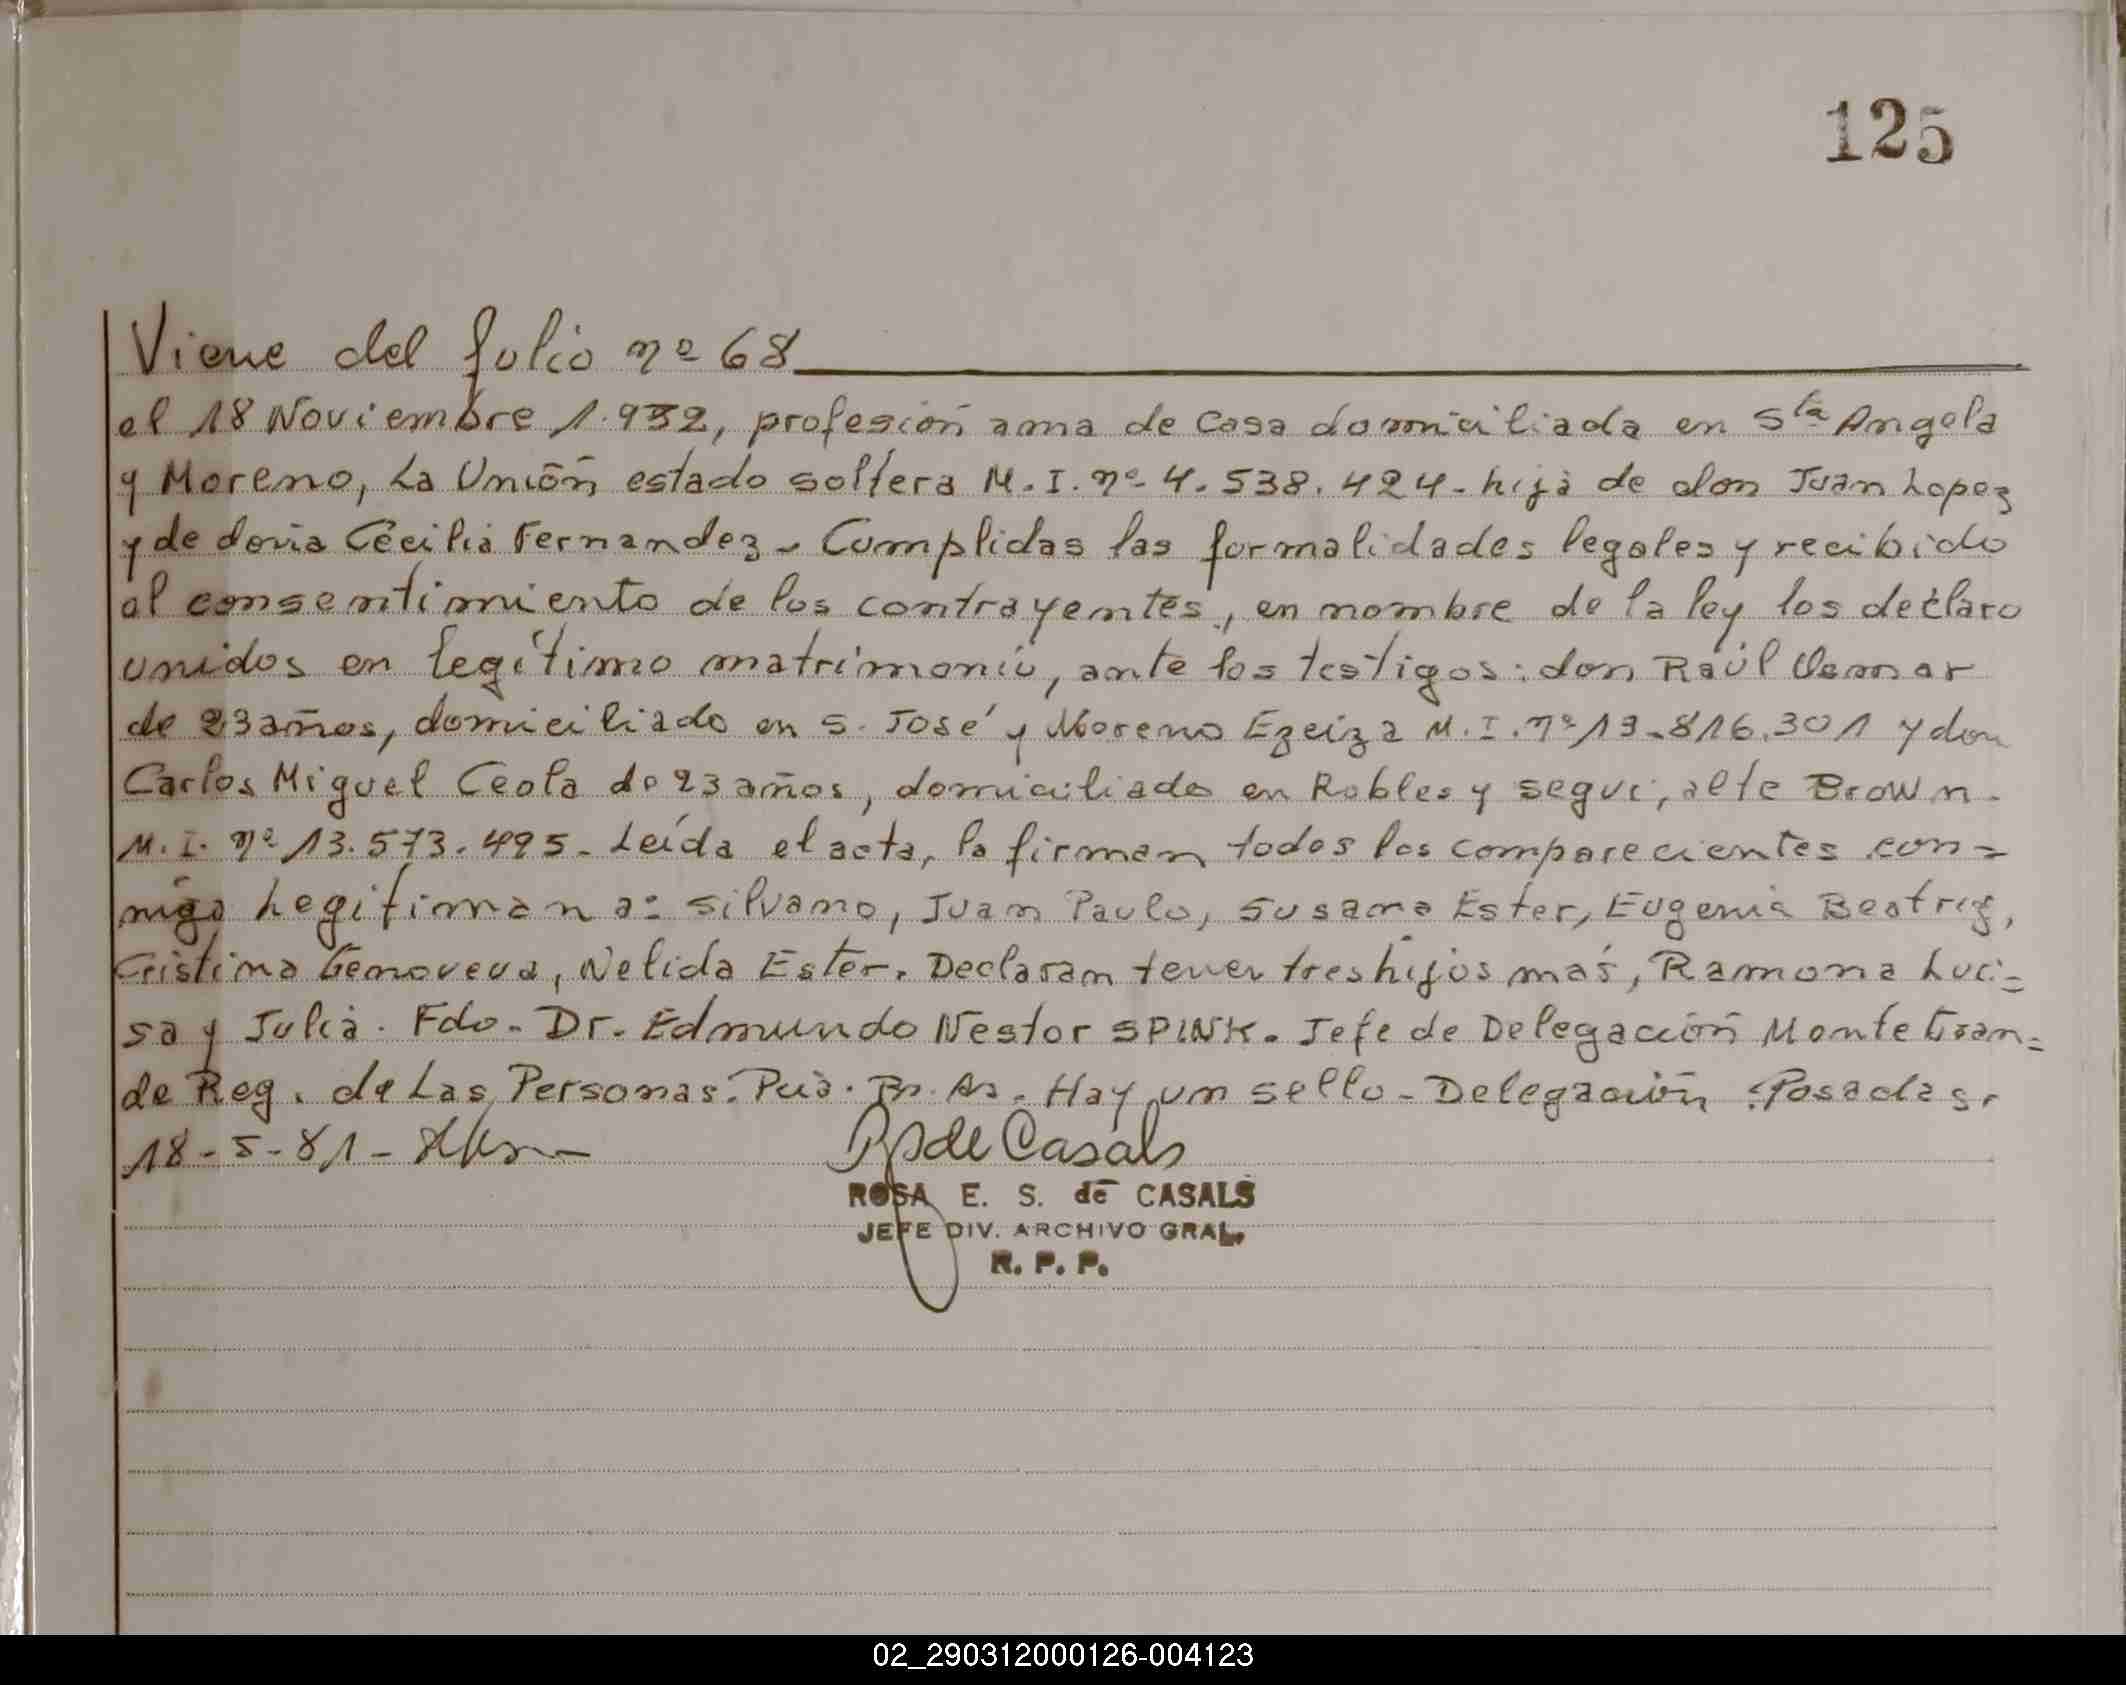 125
Viene del folio nº 68
el 18 Noviembre 1.932, profesión ama de casa domiciliada en Sta Angela
y Moreno, La Unión estado soltera M. I. nº 4. 538. 424 - hija de don Juan Lopez
y de doña Cecilia Fernandez - Cumplidas las formalidades legales y recibido
el consentimiento de los contrayentes, en nombre de la ley los declaro
unidos en legítimo matrimonio, ante los testigos: don Raúl
de 23 años, domiciliado en S. José y Moreno Ezeiza M. I. nº 13.816.301 y don
Carlos Miguel Ceola de 23 años, domiciliado en Robles y segui, alte Brown -
M. I. nº 13.573.495 - Leída el acta, la firman todos los comparecientes con=
migo Legitiman a: silvano, Juan Paulo, Susana Ester, Eugenia Beatriz,
Cristina Genoveva, Nelida Ester. Declaran tener tres hijos más, Ramona Luci=
sa y Julia. Fdo. Dr. Edmundo Nestor SPINK. Jefe de Delegación Monte Gran=
de Reg. de Las Personas. Pcia. Bs. As. Hay un sello - Delegación. Posadas,
18 - 5 - 81 -
de Casals
ROSA E. S. de CASALS
JEFE DIV. ARCHIVO GRAL.
R. P. P.
02_290312000126-004123